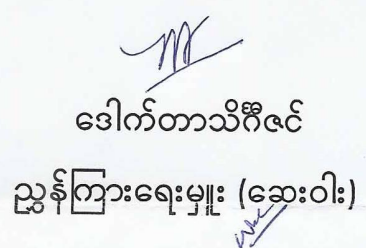 ဒေါက်တာသိင်္ဂီဇင်
ညွှန်ကြားရေးမှူး (ဆေးဝါး)